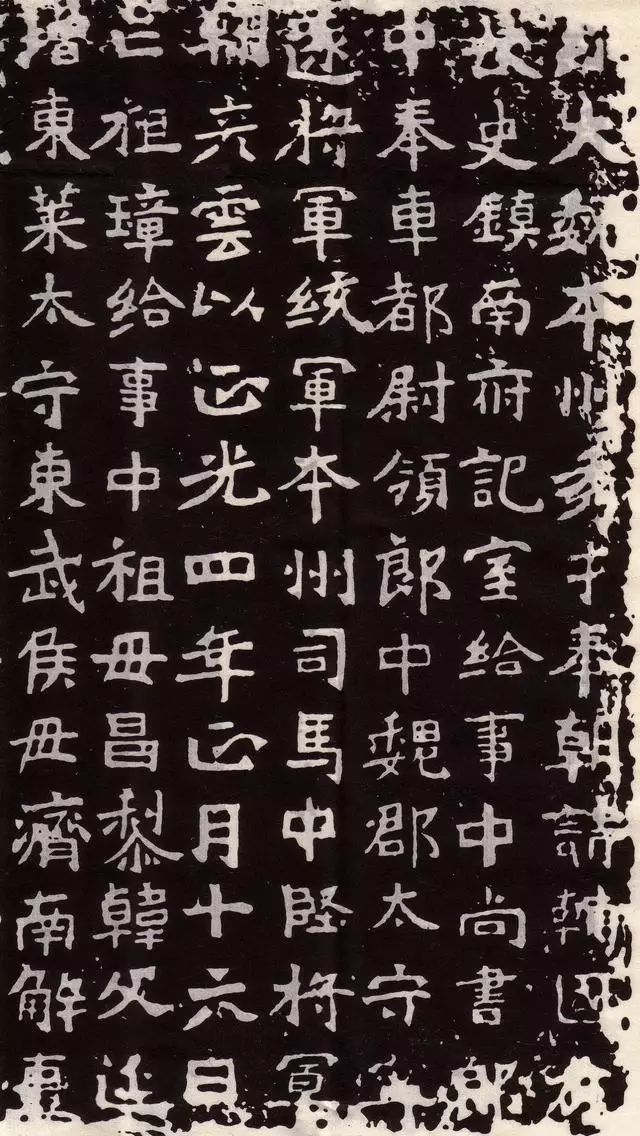 大魏本州秀才奉朝請輔國
長史鎮南府記室給事中尚書郎
中奉車都尉領郎中魏郡太守
遠將軍統軍本州司馬中堅將軍
彥雲以正光四年正月十六日
亡祖璋給事中祖母昌黎韓父延
增東萊太守東武侯母濟南解